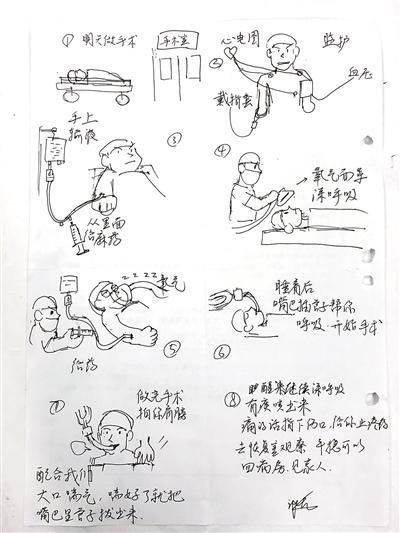 ① 明天做手术
手术室
② 心电图
监护
血压
戴指套
手上
输液
③
从里面
给麻药
④
氧气面罩
深呼吸
zzzz
氧气
⑤
给药
⑥
睡着后
嘴巴插管子帮你
呼吸.开始手术
⑦
做完手术
拍你肩膀
配合我们
大口喘气,喘好了就把
嘴巴里管子拔出来.
⑧
醒来继续深呼吸
有痰咳出来
痛的话指下伤口,给你上疼药
去恢复室观察 平稳可以
回病房.见家人.